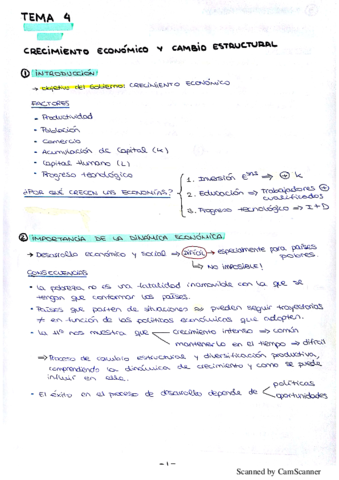 TEMA 4
CRECIMIENTO ECONÓMICO Y CAMBIO ESTRUCTURAL
① INTRODUCCIÓN:
→ Objetivo del Gobierno: CRECIMIENTO ECONÓMICO
FACTORES
- Productividad
- Población
- Comercio
- Acumulación de Capital (K)
- Capital Humano (L)
- Progreso tecnológico
¿POR QUÉ CRECEN LAS ECONOMÍAS?
1. Inversión E^sas ⇒ ⊕ K
2. Educación ⇒ Trabajadores ⊕ cualificados
3. Progreso tecnológico ⇒ I+D
② IMPORTANCIA DE LA DINÁMICA ECONÓMICA:
→ Desarrollo económico y social ⇒ Difícil → especialmente para países pobres.
↳ NO IMPOSIBLE!
CONSECUENCIAS
• La pobreza no es una fatalidad inamovible con la que se
tengan que conformar los países.
• Países que parten de situaciones = pueden seguir trayectorias
≠ en función de las políticas económicas que adopten.
• La Hª nos muestra que
crecimiento intenso ⇒ común
mantenerlo en el tiempo ⇒ difícil
⇒ Proceso de cambio estructural y diversificación productiva,
comprendiendo la dinámica de crecimiento y como se puede
influir en ella.
• El éxito en el proceso de desarrollo depende de
políticas
oportunidades
- 1 -
Scanned by CamScanner